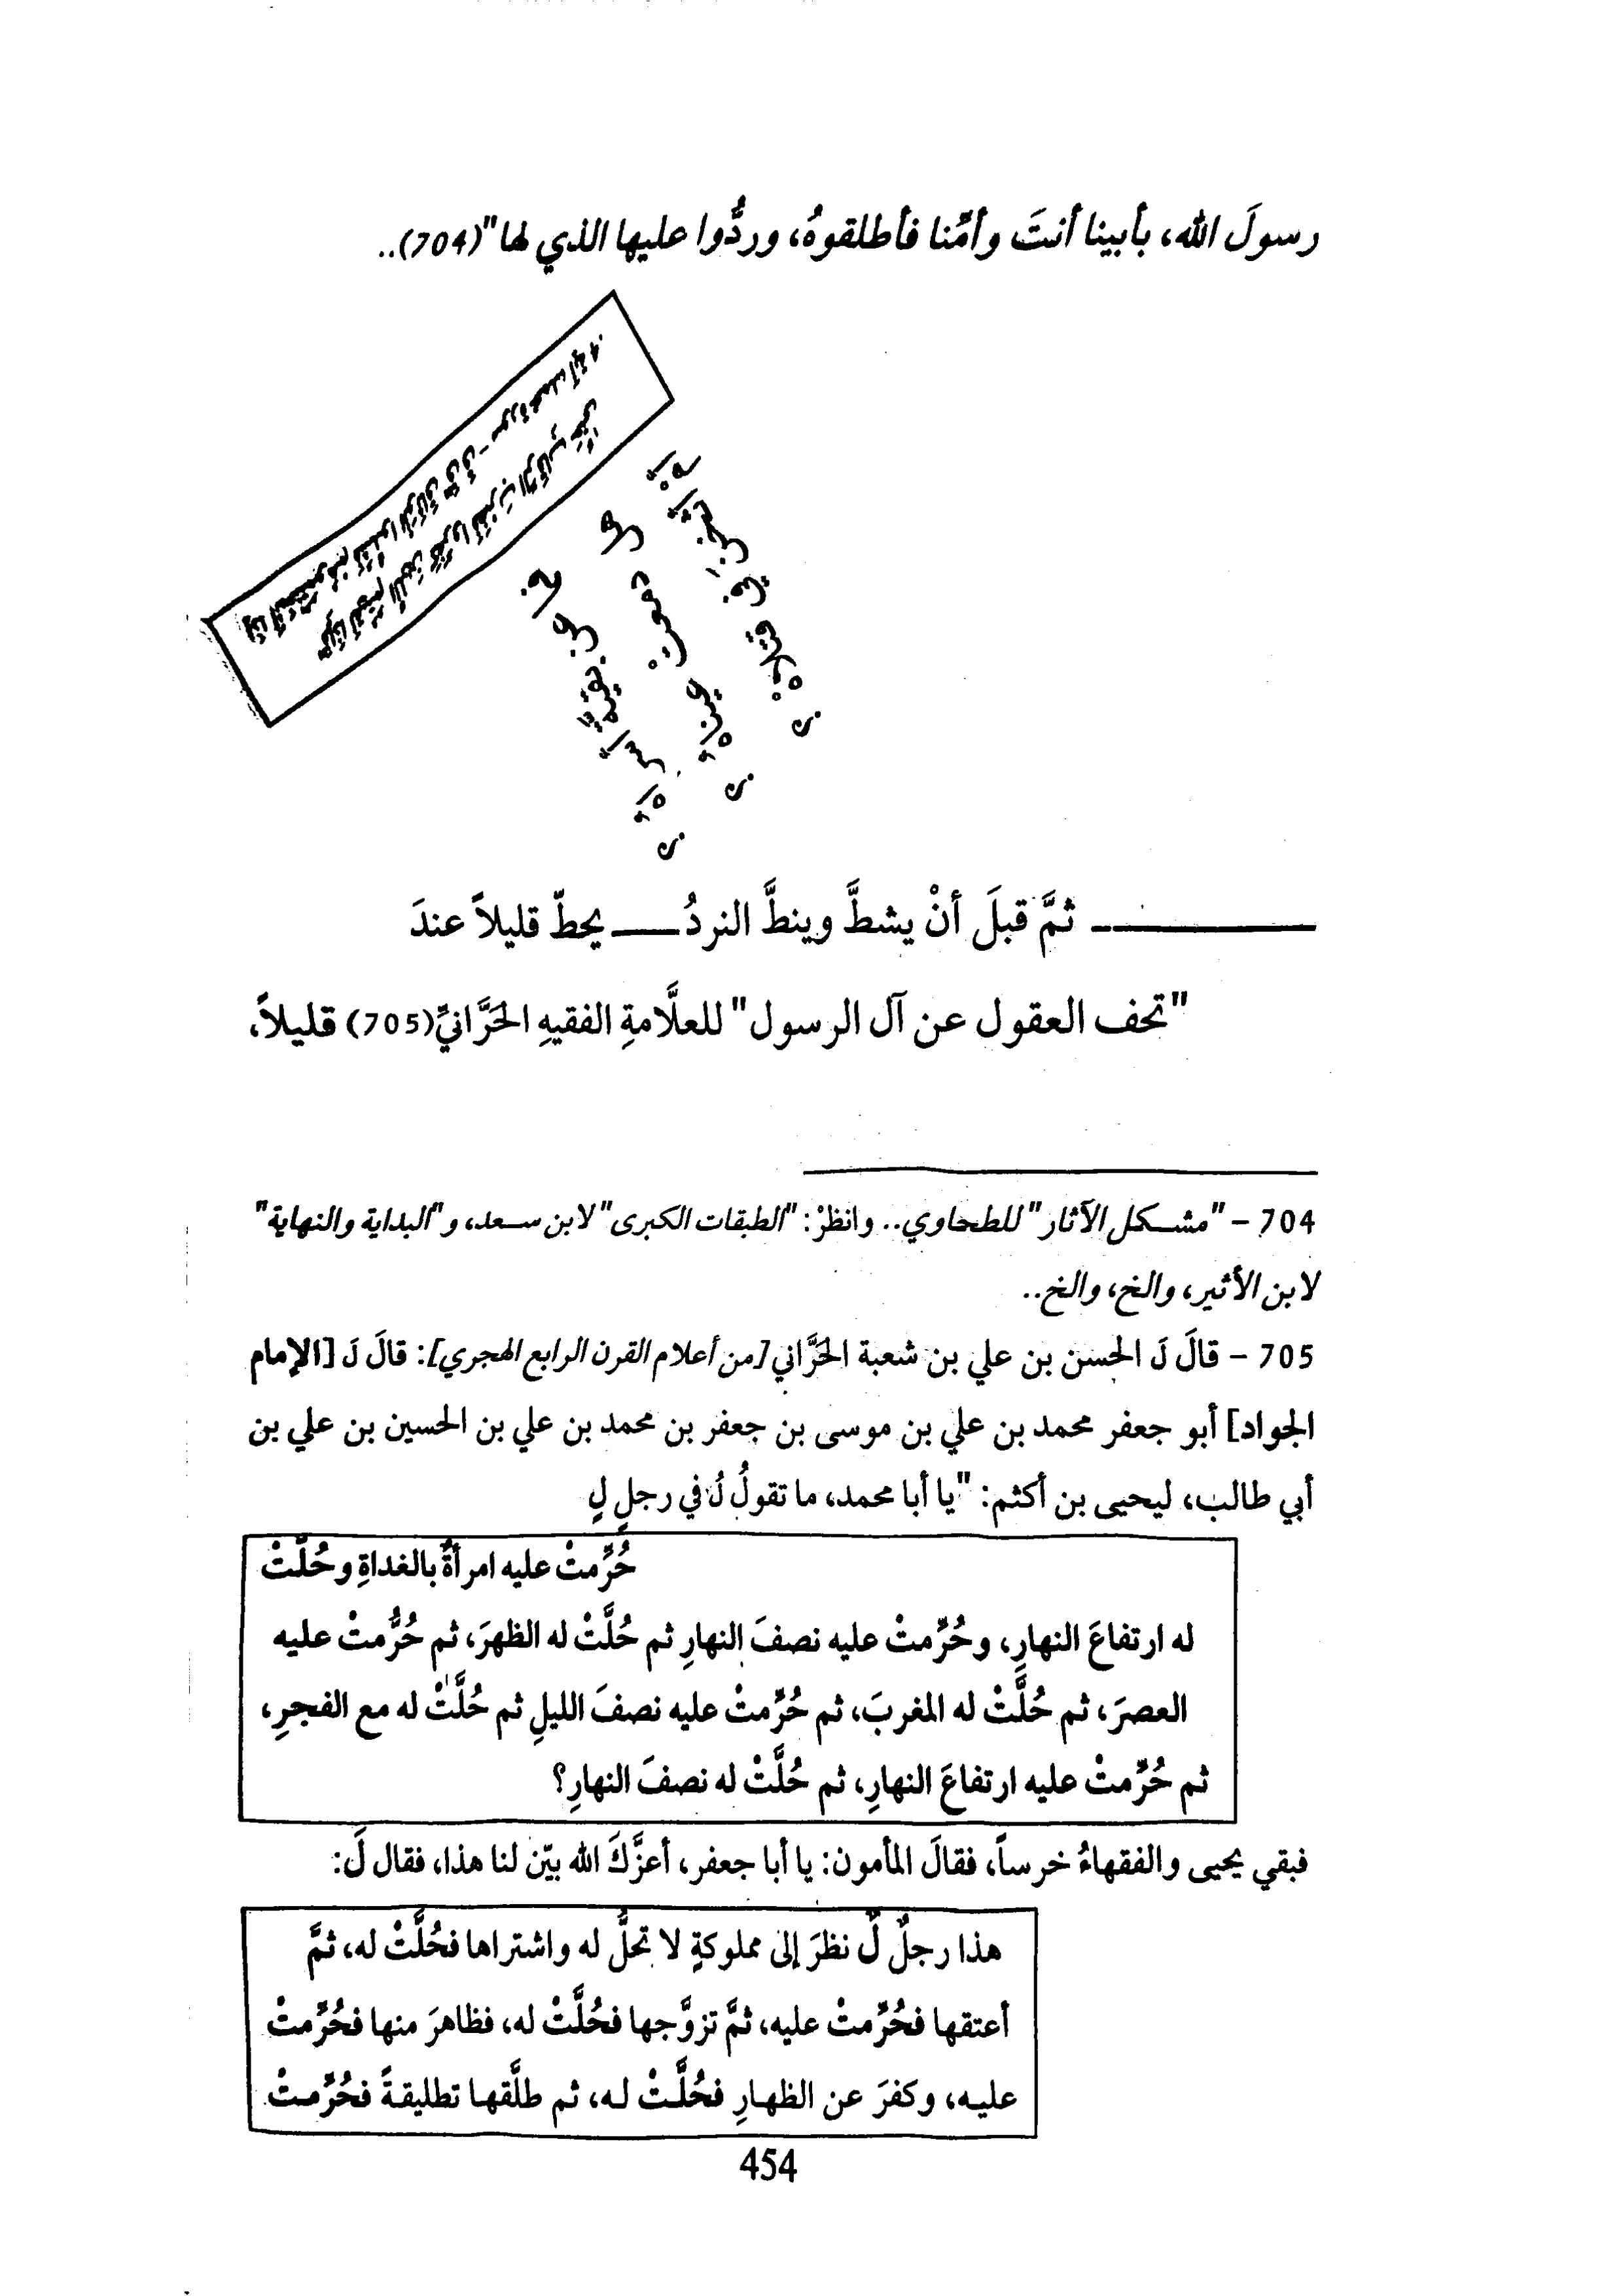 رسولَ الله، بأبينا أنتَ وأمِّنا فأطلقوهُ، وردُّوا عليها الذي لها"(704)..
ثمَّ قبلَ أنْ يشطَّ وينطَّ النردُ ـــــ يحطّ قليلاً عندَ
"تحف العقول عن آل الرسول" للعلَّامةِ الفقيهِ الحَرَّانيِّ(705) قليلاً،
704 – "مشـكل الآثار" للطحاوي.. وانظرْ: "الطبقات الكبرى" لابن سـعد، و"البداية والنهاية"
لابن الأثير، والخ، والخ..
705 – قالَ لَ الحسن بن علي بن شعبة الحَرَّاني [من أعلام القرن الرابع الهجري]: قالَ لَ [الإمام
الجواد] أبو جعفر محمد بن علي بن موسى بن جعفر بن محمد بن علي بن الحسين بن علي بن
أبي طالب، ليحيى بن أكثم: "يا أبا محمد، ما تقولُ لُ في رجلٍ لٍ
حُرِّمتْ عليه امرأةٌ بالغداةِ وحُلَّتْ
له ارتفاعَ النهارِ، وحُرِّمتْ عليه نصفَ النهارِ ثم حُلَّتْ له الظهرَ، ثم حُرُّمتْ عليه
العصرَ، ثم حُلَّتْ له المغربَ، ثم حُرِّمتْ عليه نصفَ الليلِ ثم حُلَّتْ له مع الفجرِ،
ثم حُرِّمتْ عليه ارتفاعَ النهارِ، ثم حُلَّتْ له نصفَ النهارِ؟
فبقي يحيى والفقهاءُ خرساً، فقالَ المأمون: يا أبا جعفر، أعزَّكَ الله بيّن لنا هذا، فقال لَ:
هذا رجلٌ لٌ نظرَ إلى مملوكةٍ لا تحلُّ له واشتراها فحُلَّتْ له، ثمَّ
أعتقها فحُرِّمتْ عليه، ثمَّ تزوَّجها فحُلَّتْ له، فظاهرَ منها فحُرِّمتْ
عليه، وكفرَ عن الظهارِ فحُلَّتْ له، ثم طلَّقها تطليقةً فحُرِّمتْ
454